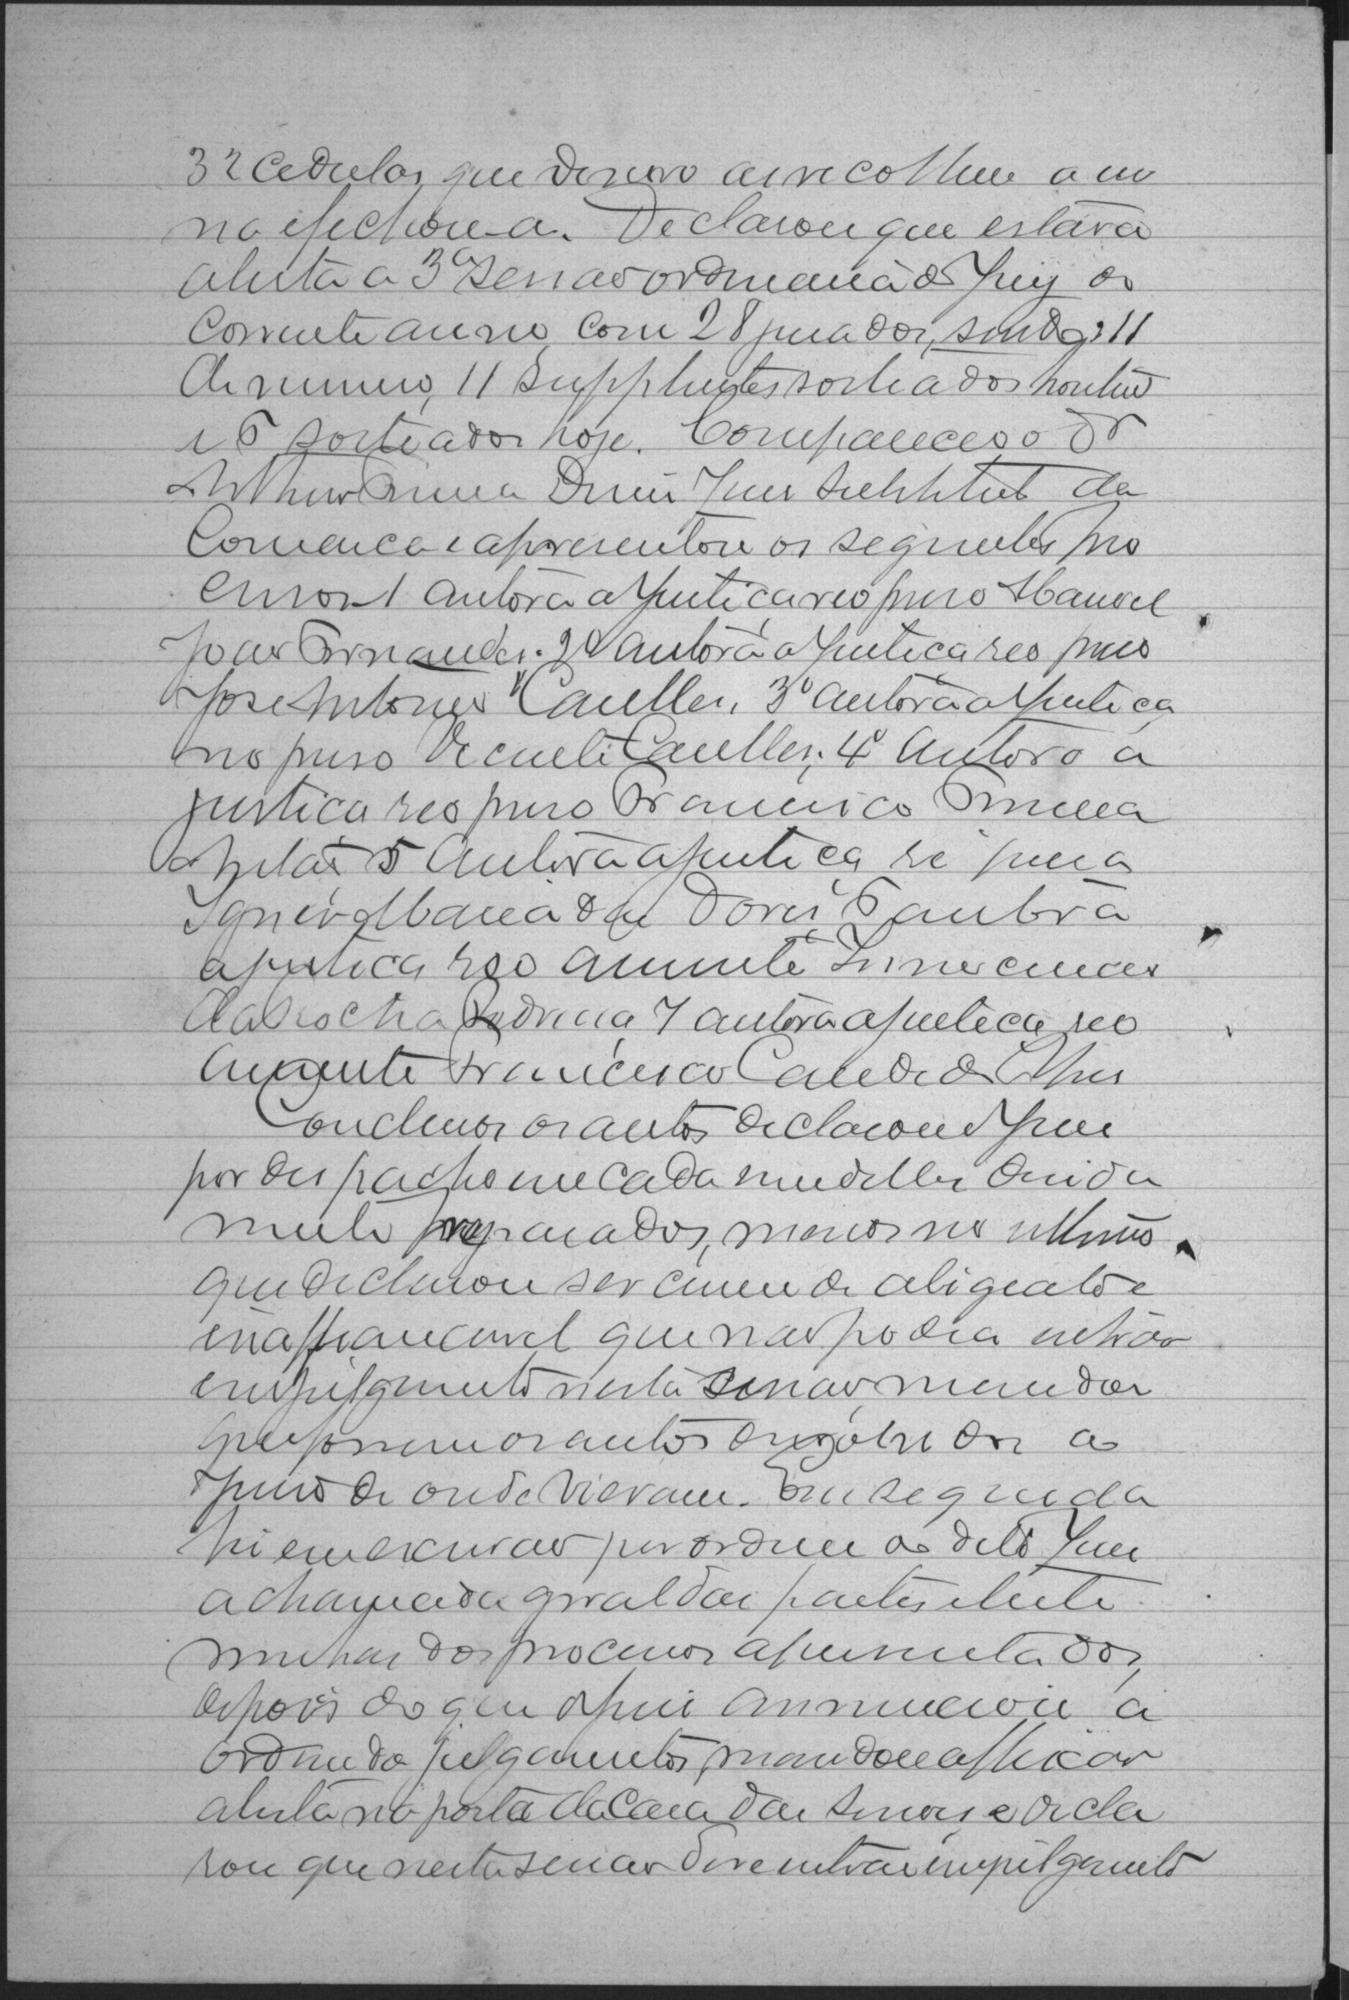 32 cedulas que de novo as recolheu a ur
na e fechou-a. Declarou que estava
aberta a 3ª sessão ordinaria do Jury do
corrente anno com 28 jurados, sendo: 11
de numero, 11 supplentes sorteados hontem
e 6 sorteados hoje. Compareceo o Dr
Arthur Diniz Juiz Substituto da
Comarca e apresentou os seguintes pro
cessos 1 autora a Justiça reo preso Manoel
João Fernandes. 2º autora a Justiça reo preso
José Antonio 3º autora a Justiça
reo preso Vicente 4º Autora a
justiça reo preso Francisco
5 Autora a justiça ré presa
Ignez Maria das Dores, 6 autora
a justiça reo ausente
da Rocha 7 autora a justiça reo
ausente Francisco Candido
Conclusos os autos declarou o Juiz
por despacho em cada um delles devida
mente preparados, menos no ultimo
que declarou ser crime de abigeato e
inaffiancavel que não podia entrar
em julgamento nesta sessão, mandou
que fossem os autos devolvidos ao
Juiso de onde vieram. Em seguida
fiz em execução por ordem do dito Juiz
a chamada geral das partes e teste
munhas dos processos apresentados,
depois do que o Juiz annunciou a
ordem do julgamentos, mandou affixar
a lista na porta da Casa das sessões e decla
rou que nesta sessão deve entrar em julgamento